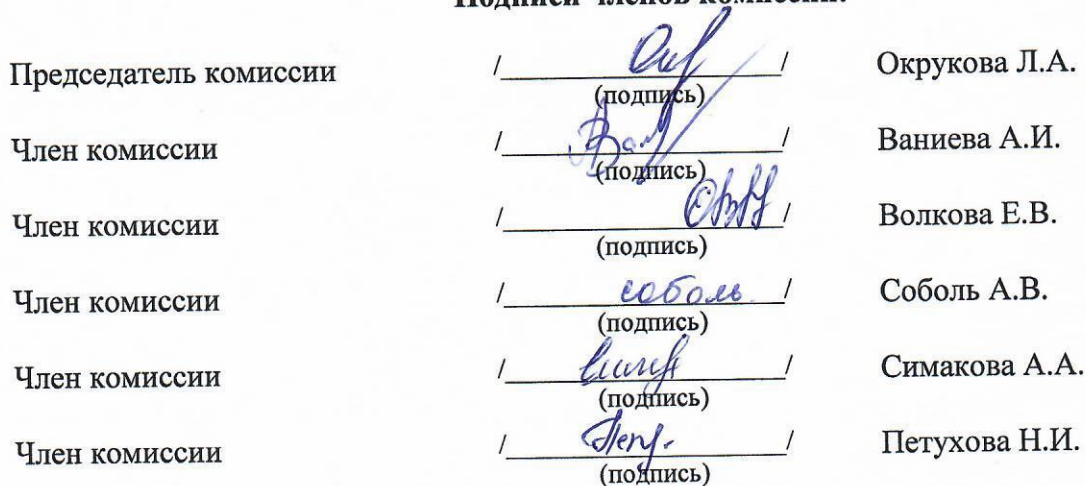 Подписи членов комиссии:
Председатель комиссии / / Окрукова Л.А.
(подпись)
Член комиссии / / Ваниева А.И.
(подпись)
Член комиссии / / Волкова Е.В.
(подпись)
Член комиссии / соболь / Соболь А.В.
(подпись)
Член комиссии / / Симакова А.А.
(подпись)
Член комиссии / / Петухова Н.И.
(подпись)